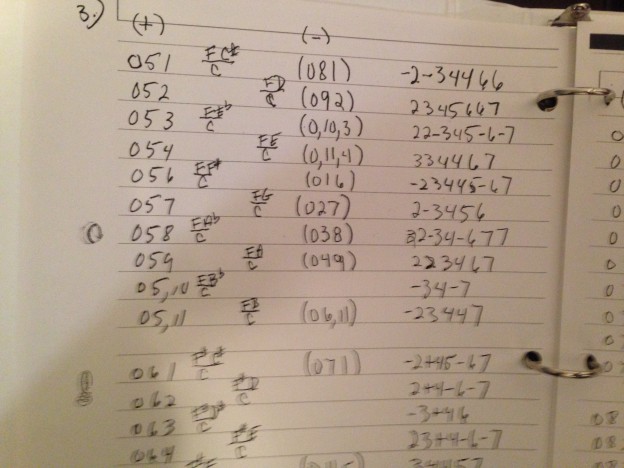 3.) (+) (-)
051 FC# / C (081) -2-34466
052 FD / C (092) 2345667
053 FE♭ / C (0,10,3) 22-345-6-7
054 FE / C (0,11,4) 334467
056 FF# / C (016) -23445-67
057 FG / C (027) 2-3456
058 FA♭ / C (038) 2-34-677
059 FA / C (049) 223467
05,10 FB♭ / C -34-7
05,11 FB / C (06,11) -23447
061 C (071) -2+45-67
062 2+4-6-7
063 C -3+46
064 23+4-6-7